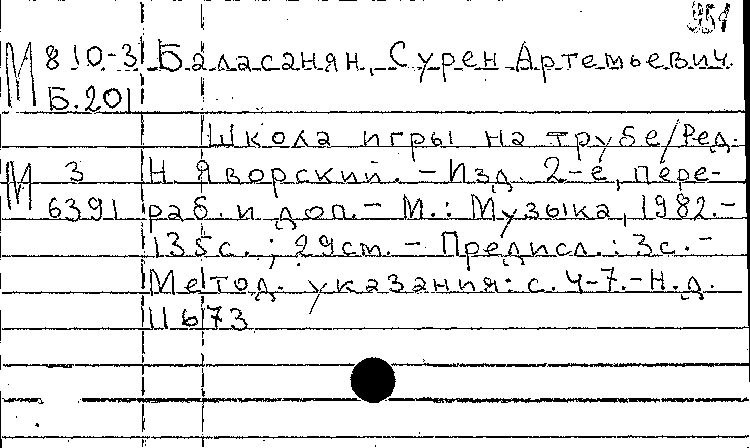 951
М 810-3 Баласанян, Сурен Артемьевич
Б.201
Школа игры на трубе/Ред.
М 3 Н. Яворский. – Изд. 2-е, пере-
6391 раб. и доп. – М.: Музыка, 1982. –
135с.; 29см. – Предисл.: 3с. –
Метод. указания: с. 4-7. – Н.д.
11673